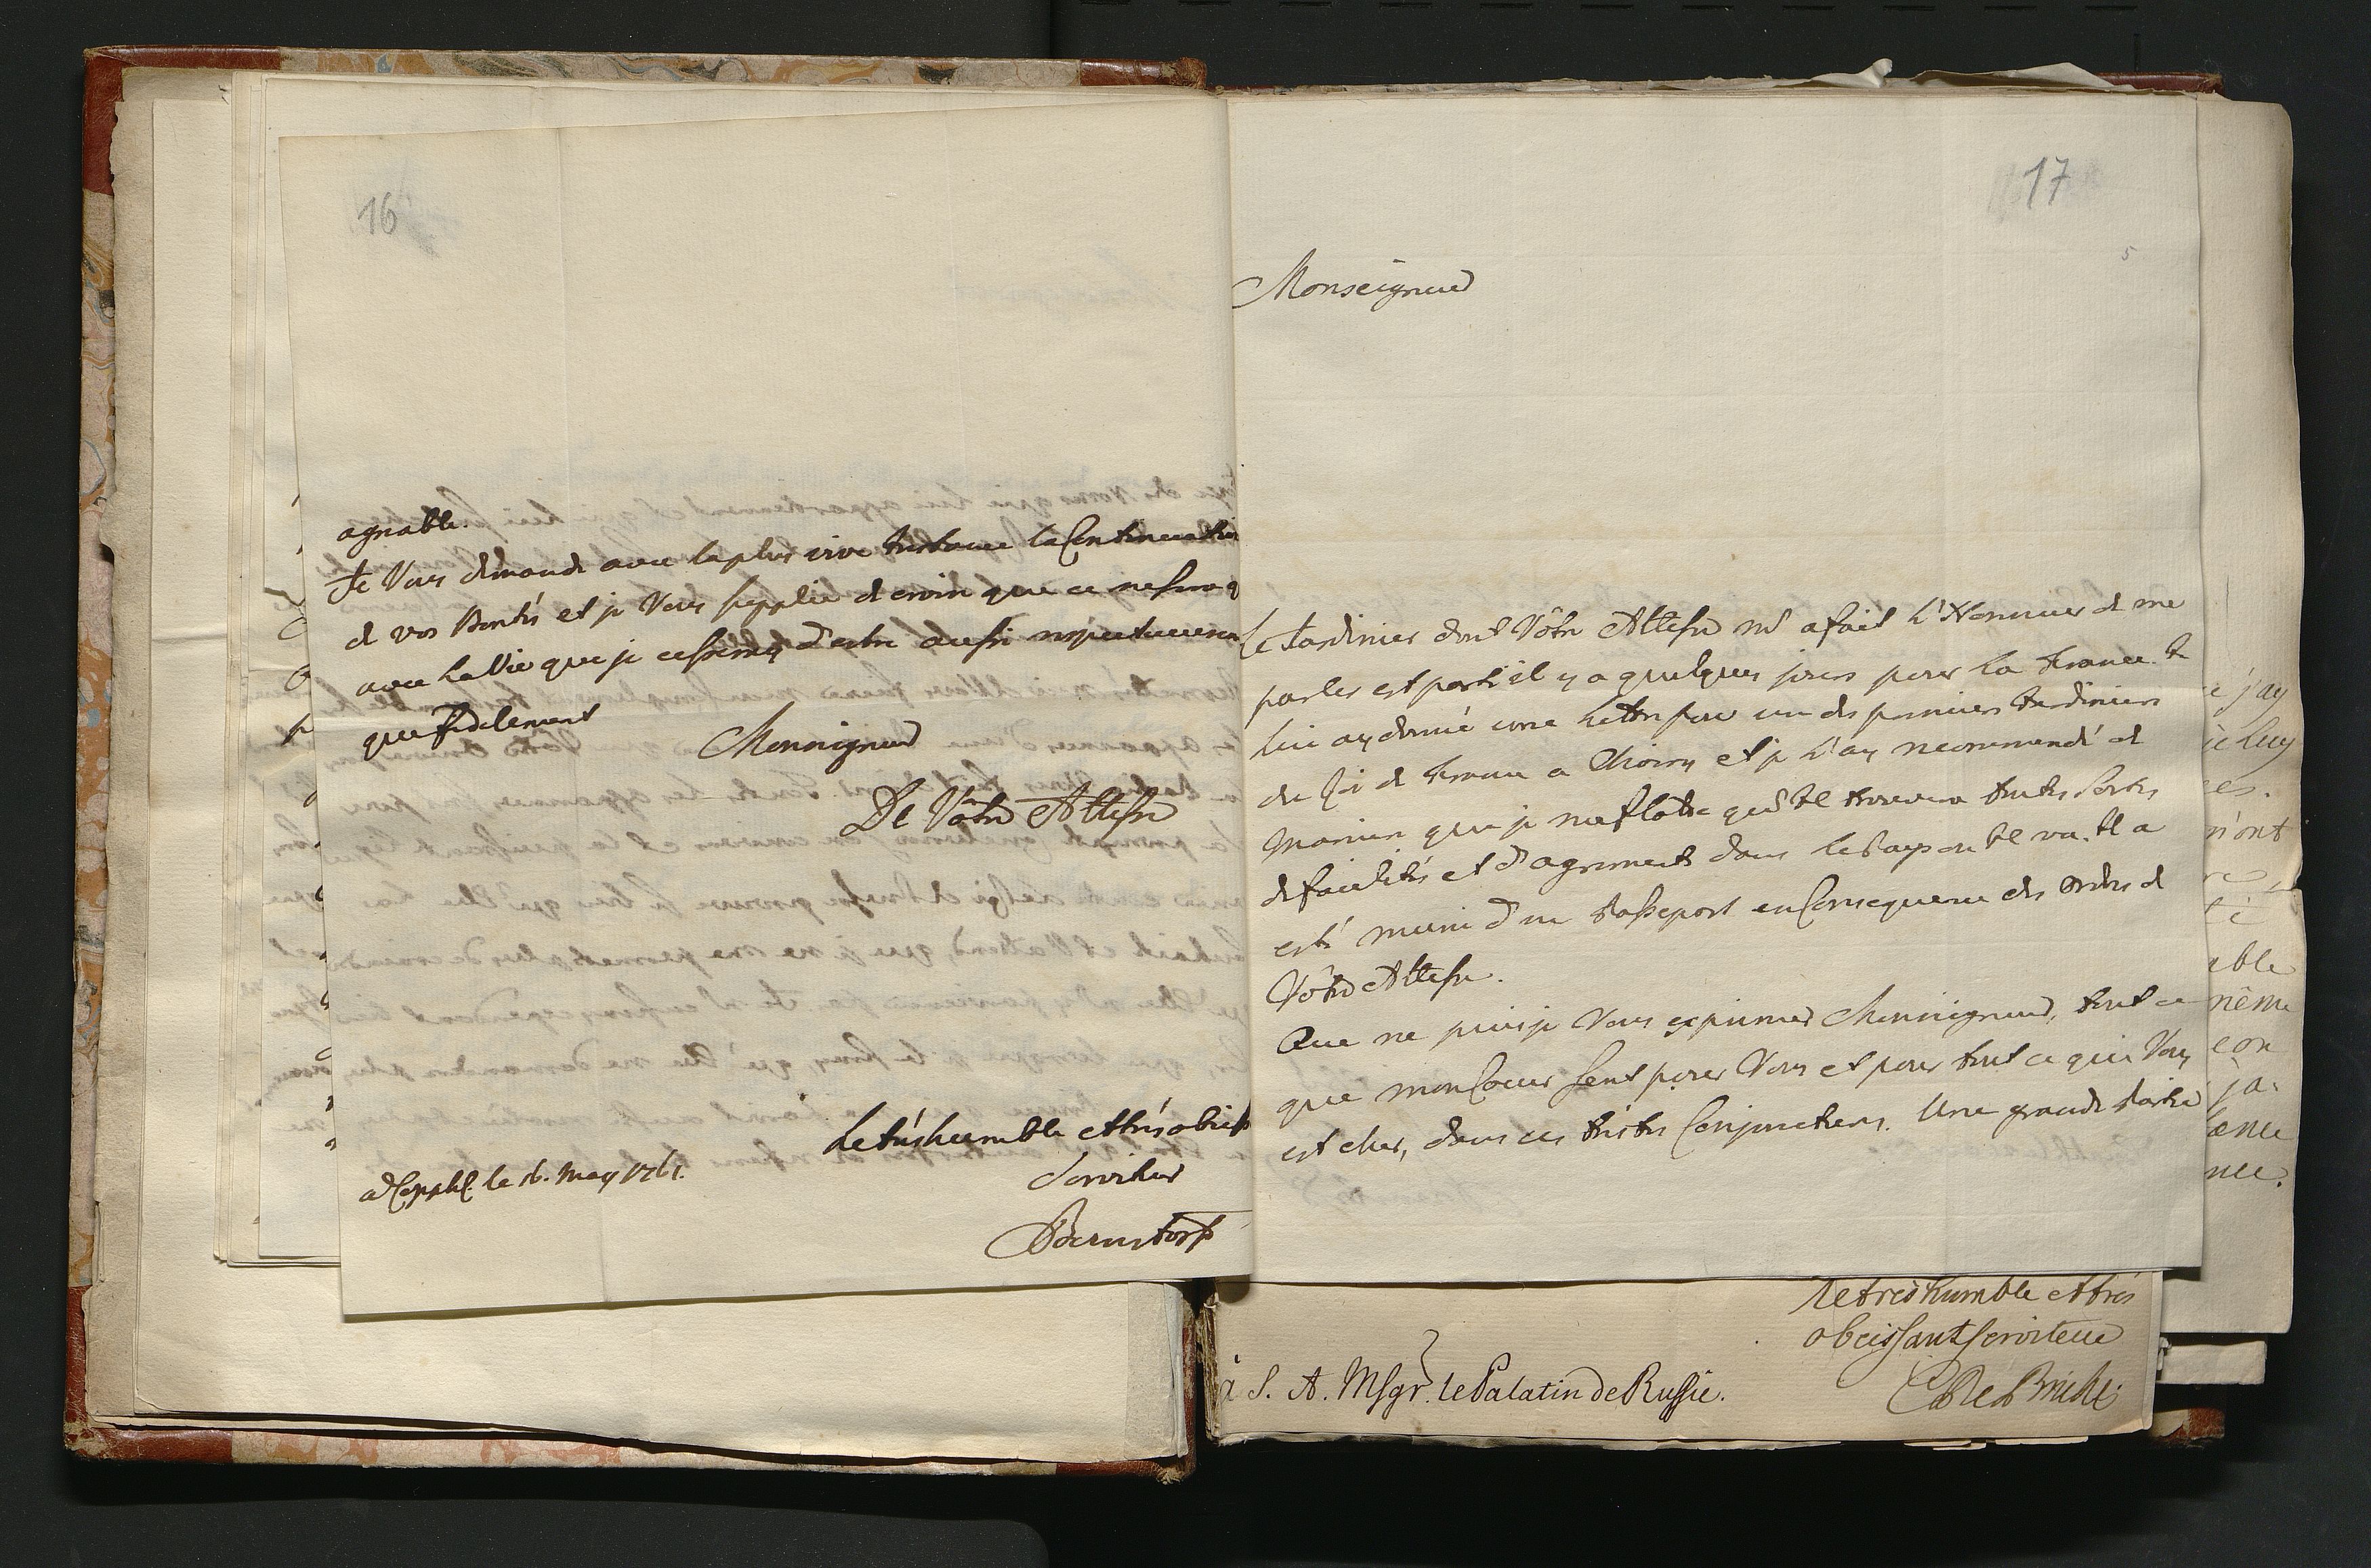 16
agreable.
Je Vous demande avec la plus vive Instance la Continuation
de vos Bontés et je Vous supplie de croire que ce ne sera q
avec la Vie que je cesseray d'estre aussi respectueusem
que fidelement
Monseigneur
De Vôtre Altesse
Le trés humble et trés obeiss
Serviteur
Bernstorff
a Copph. le 16. May 1761.
17
5
Monseigneur
Le Jardinier dont Vôtre Altesse m'a fait l'Honneur de me
parler est parti il y a quelques jours pour la France. Je
lui ay donné une Lettre pour un des premiers Jardiniers
du Roi de France a Choisy et je l'ay recommandé de
Maniere que je me flatte qu'Il trouvera toutes sortes
de facilités et d'agrements dans le Pays ou Il va. Il a
esté muni d'un Passeport en Consequence des Ordres de
Vôtre Altesse.
Que ne puis je Vous exprimer Monseigneur, tout ce
que mon Coeur sent pour Vous et pour tout ce qui Vous
est cher, dans ces tristes Conjonctures. Une grande Partie
e j'ay
ie luy
es.
n'ont
re
able
même
eon
ja-
ance
nce.
le tres humble et tres
obeissant serviteur
C de Brühl
à S. A. Msgr. le Palatin de Russie.